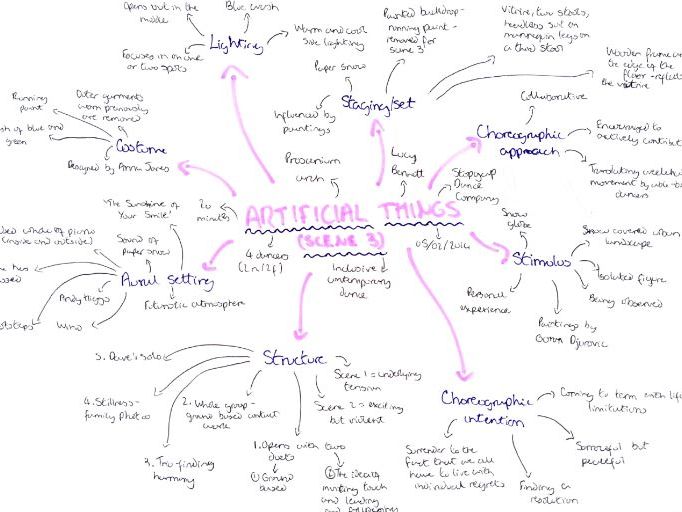 Opens out in the
middle
Blue wash
Lighting
Warm and cool
side lighting
Focuses in on one
or two spots
Painted backdrop -
running paint -
removed for
scene 3
Vitrine, two stools,
headless suit on
mannequin legs on
a third stool
Wooden frame
the edge of the
floor - reflects
the vitrine
Paper snow
Staging/set
Influenced by
paintings
Collaborative
Choreographic
approach
Encouraged to
actively contribute
Translating
movement by
dancers
Running
paint
Outer garments
worn previously
are removed
of blue and
green
Costume
Designed by Anna Jones
Proscenium
arch
Lucy
Bennett
Stopgap
Dance
Company
'The Sunshine of
Your Smile'
20
minutes
ARTIFICIAL THINGS
(SCENE 3)
4 dancers
(2m/2f)
Inclusive
contemporary
dance
05/02/2014
Snow
globe
Snow covered urban
landscape
Stimulus
Isolated figure
Being observed
Personal
experience
Paintings by
Goran Djurovic
of piano
(inside and outside)
Sound of
paper snow
Aural setting
Andy Higgs
Futuristic atmosphere
Wind
5. Dave's solo
Structure
Scene 1 = underlying
tension
4. Stillness -
family photos
2. Whole group -
ground based contact
work
Scene 2 = exciting
but violent
3. Trio finding
harmony
1. Opens with two
duets
① Ground
based
②
touch
and leading
and following
Choreographic
intention
Coming to term with life
limitations
Surrender to the
fact that we all
have to live with
individual regrets
Finding a
resolution
Sorrowful but
peaceful